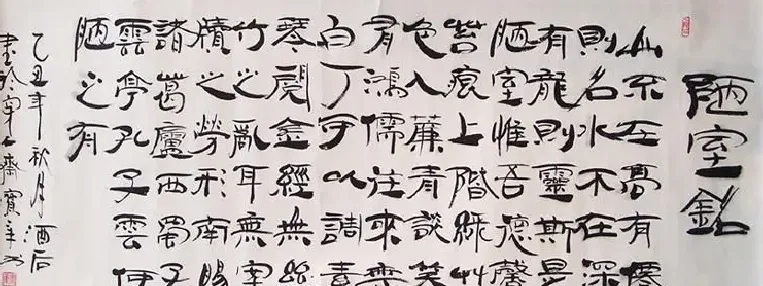 陋室銘
山不在高有僊
則名水不在深
有龍則靈斯是
陋室惟吾德馨
苔痕上階綠艸
色入簾青談笑
有鴻儒往來無
白丁可以調素
琴閱金經無絲
竹之亂耳無案
牘之勞形南陽
諸葛廬西蜀子
雲亭孔子雲何
陋之有
乙丑年秋月酒后
書於齋